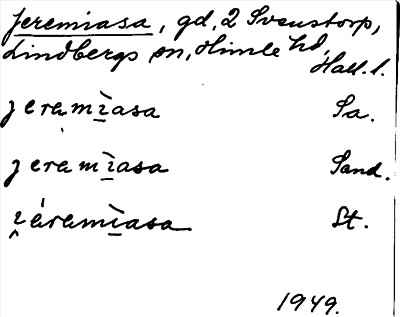 Jeremiasa, gd, 2 Svenstorp,
Lindbergs sn, Himle hd,
Hall. l.
jeremìasa Sa.
jeremìasa Sand.
i̯áremìasa St.
1949.